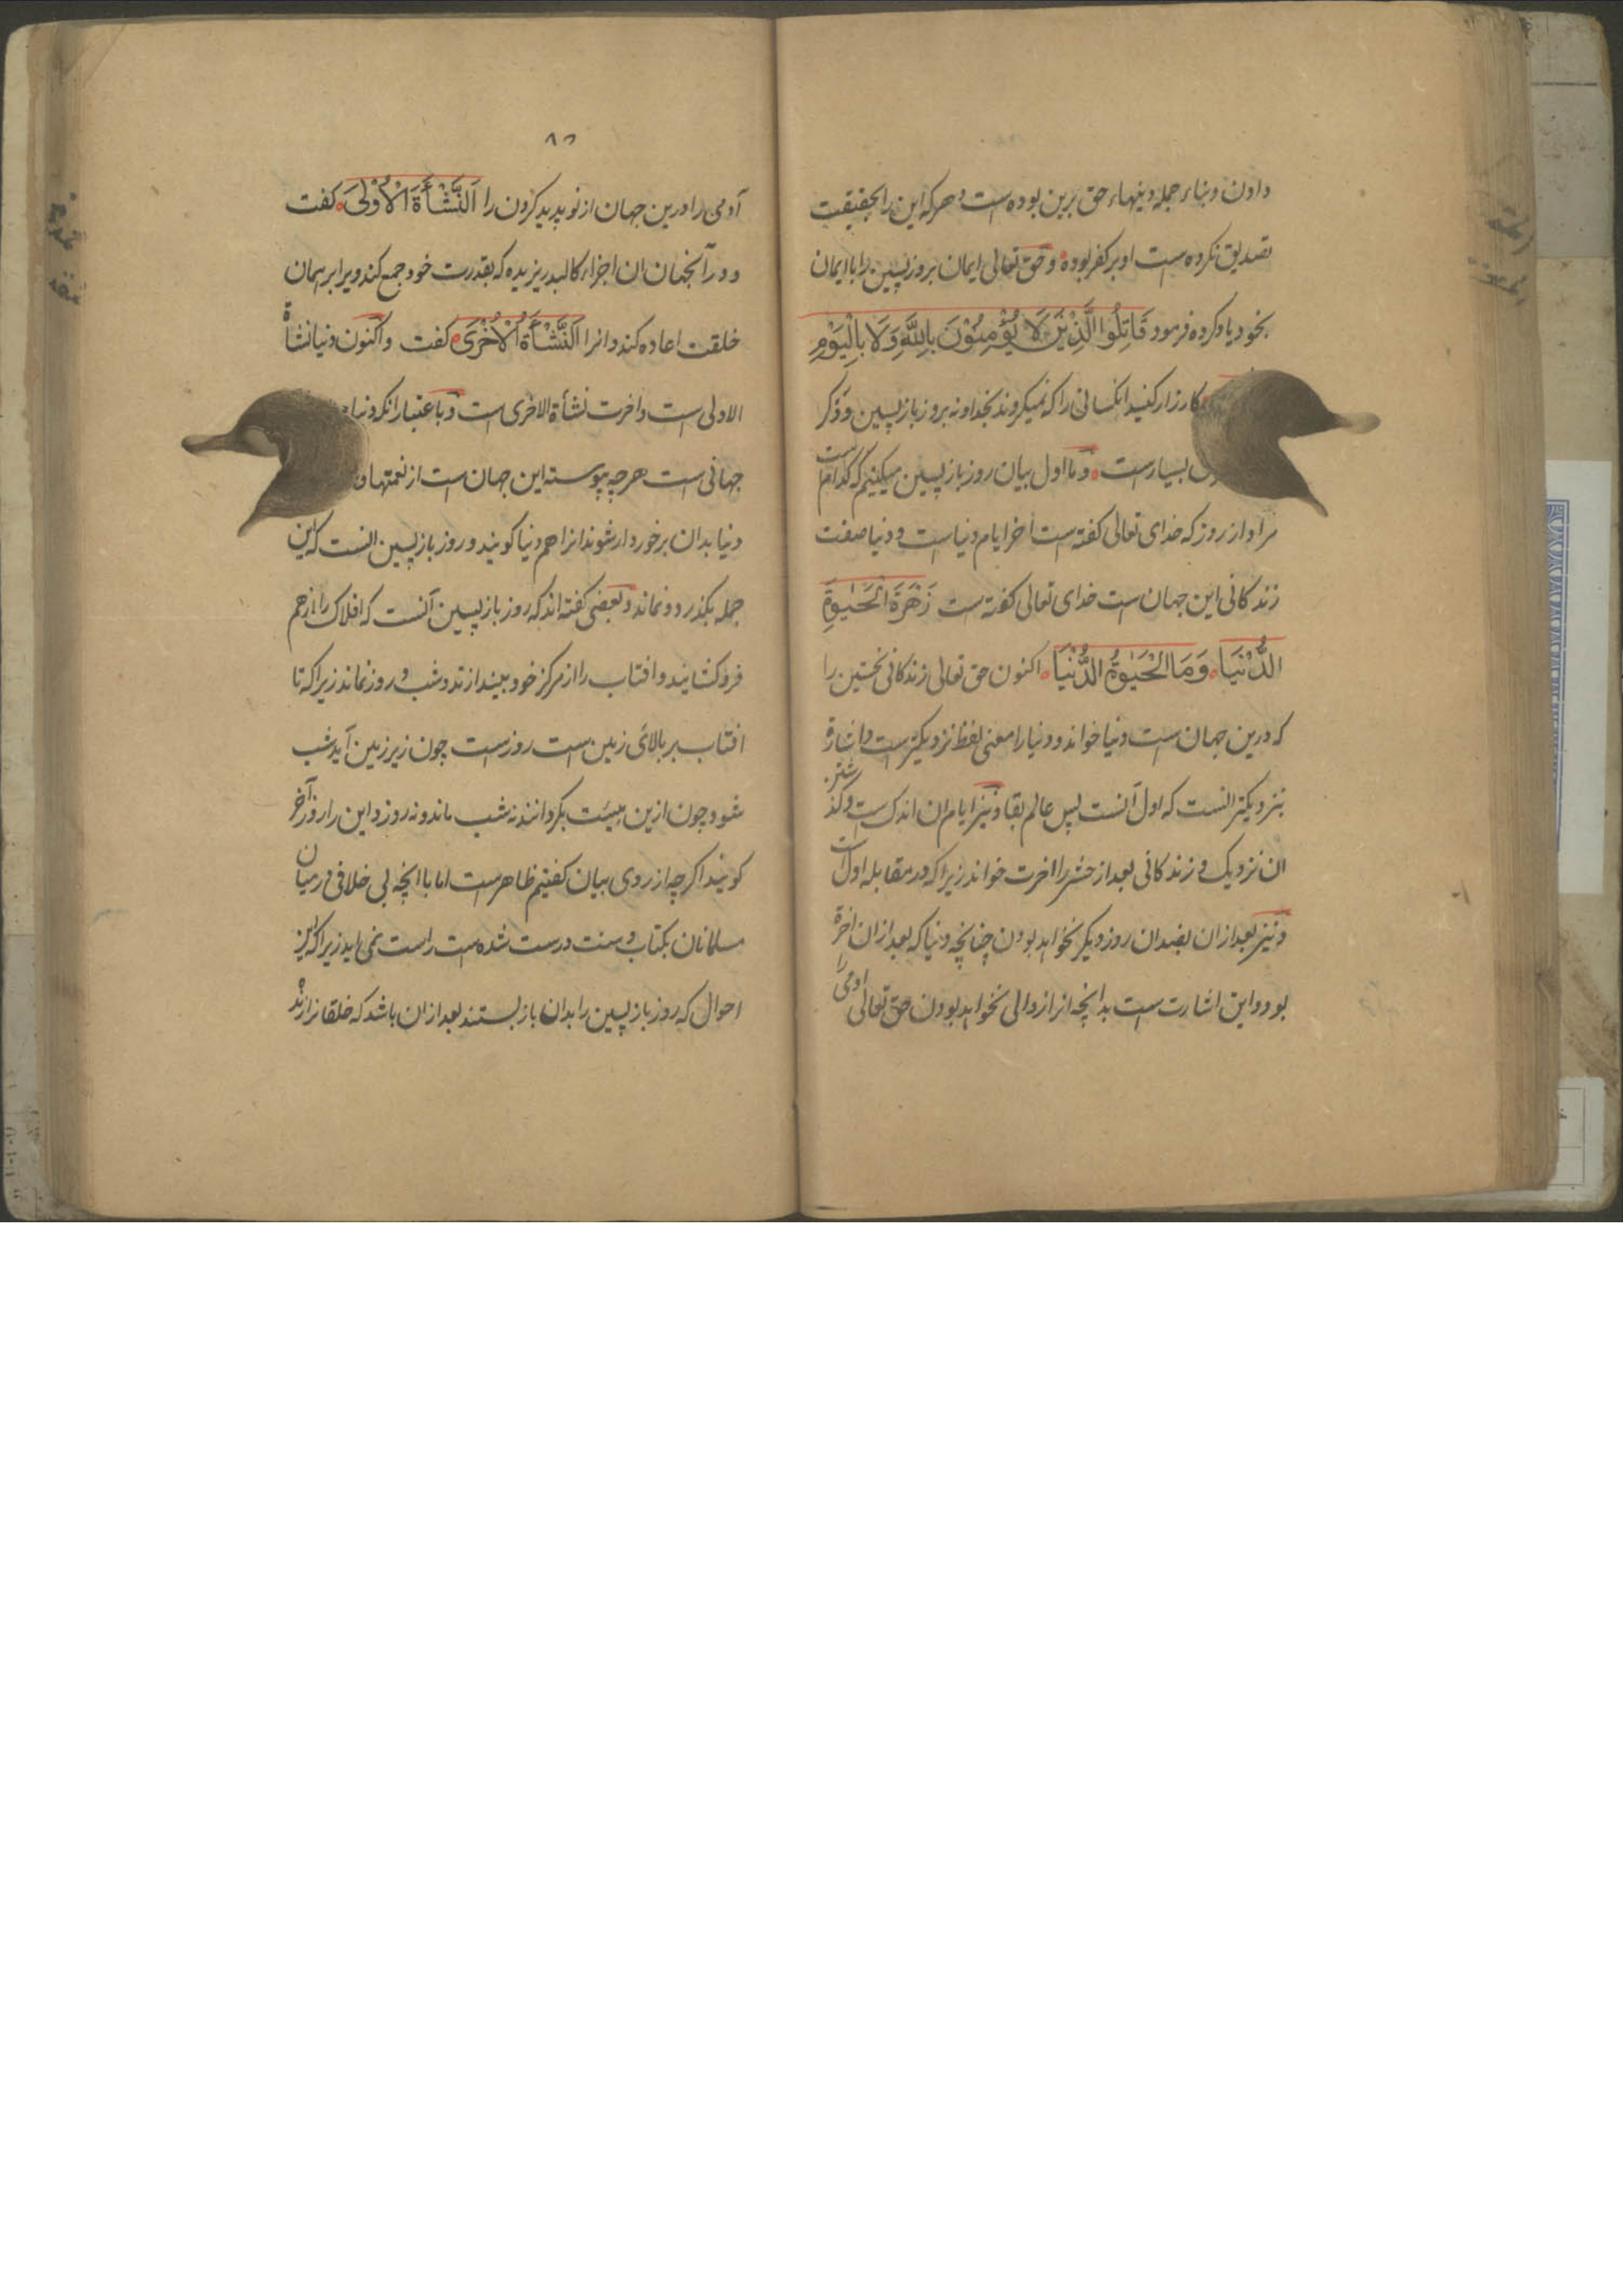 دادن و بناء جمله دینهاء حق برین بوده است و هرکه این را بحقیقت
تصدیق نکرده است او بر کفر بوده و حق تعالی ایمان بروز پسین را با ایمان
بخود یاد کرده فرمود قَاتِلُوا الَّذِيْنَ لَا يُؤْمِنُوْنَ بِاللّٰهِ وَلَا بِالْيَوْمِ
کارزار کنید انکسانی را که نمیکروند بخدا و نه بروز بازپسین و ذکر
بسیارست و ما اول بیان روز بازپسین میکنیم که کدام است
مراد از روز که خدای تعالی کفته است اخر ایام دنیاست و دنیا صفت
زندکانی این جهان ست خدای تعالی کفته ست زَهْرَةَ الْحَيٰوةِ
الدُّنْيَا وَمَا الْحَيٰوةُ الدُّنْيَا اکنون حق تعالی زندکانی نخستین را
که درین جهان ست دنیا خواند و دنیا را معنی لفظ نزدیکترست و اشارة
بنزدیکتر انست که اول آنست پس عالم بقا و نیز ایام ان اندک ست و کذشتن
ان نزدیک و زندکانی بعد از حشر را اخرت خواند زیرا که در مقابله اول است
و نیز بعد از ان بضد ان روز دیکر نخواهد بودن چنانچه دنیا که بعد از ان اخرة
بود و این اشارت ست بدانچه انرا زوالی نخواهد بودن حق تعالی ادمی را
۸۵
آدمی را درین جهان از نو پدید کردن را اَلنَّشْأَةَ الْاُوْلٰى کفت
و در آنجهان ان اجزاء کالبد ریزیده که بقدرت خود جمع کند و ویرا بر همان
خلقت اعاده کند و انرا اَلنَّشْأَةَ الْاُخْرٰى کفت و اکنون دنیا نشأة
الاولی ست و اخرت نشأة الاخری ست و باعتبار انکه دنیا
جهانی ست هرچه پیوسته این جهان ست از نعمتها و
دنیا بدان برخوردار شوند انرا هم دنیا کویند و روز بازپسین انست که این
جمله بکذرد و نماند و بعضی کفته اند که روز بازپسین آنست که افلاک را از هم
فروکشایند و افتاب را از مرکز خود بیندازند و شب و روز نماند زیرا که تا
افتاب بر بالای زمین است روزست چون زیر زمین آید شب
شود چون ازین هیئت بکردانند نه شب ماند و نه روز و این را روز آخر
کویند اکرچه از روی بیان کفتیم ظاهرست اما با انچه بی خلافی در میان
مسلمانان بکتاب و سنت درست شده ست راست نمی اید زیرا که این
احوال که روز بازپسین را بدان بازبستند بعد از ان باشد که خلقانرا زنده